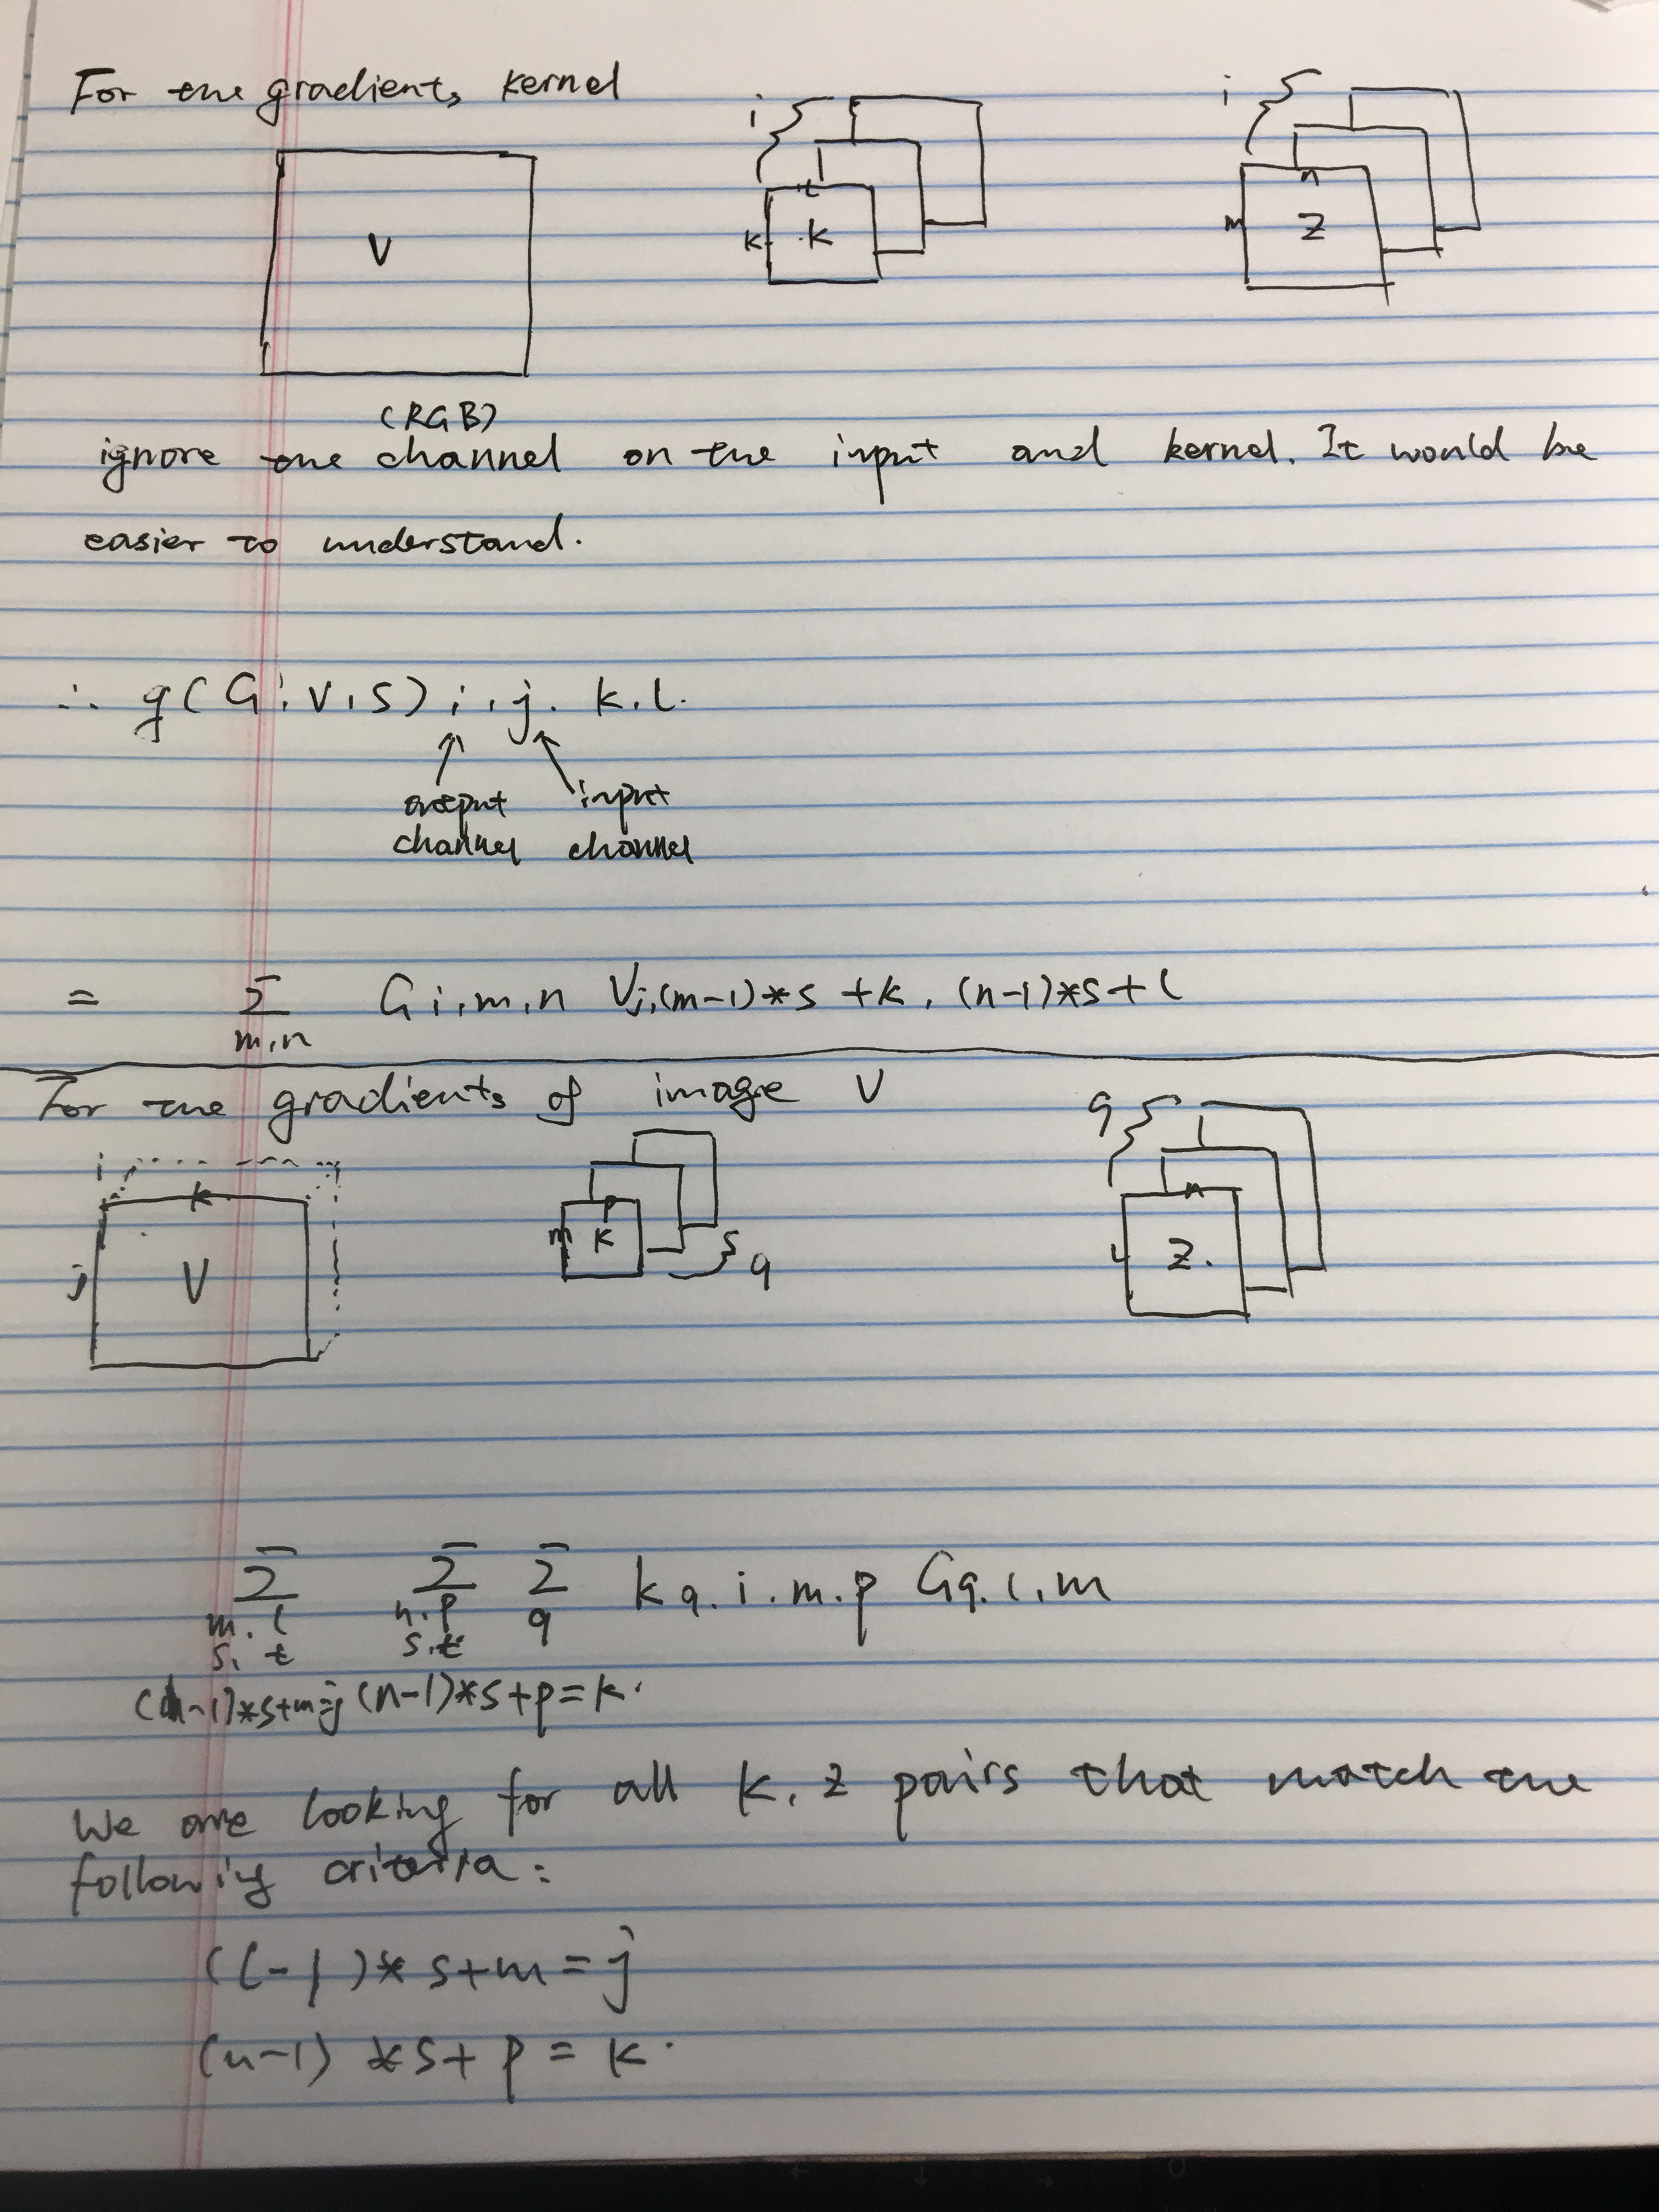 For the gradients kernel
i
i
V
l
k
k
n
m
Z
(RGB)
ignore one channel on the input and kernel. It would be
easier to understand.
∴ g(G, V, S) i, j. k, l.
output channel
input channel
= Σ G i, m, n Vj, (m-1)*s +k, (n-1)*s+l
m, n
For the gradients of image V
i
k
j
V
p
m
k
q
q
n
l
Z.
Σ Σ Σ k q. i. m. p Gq. l, m
m. l n. p q
s, t s.t
(l-1)*s+m=j (n-1)*s+p=k.
We are looking for all k, z pairs that match the
following criteria:
(l-1)*s+m=j
(n-1)*s+p=k.